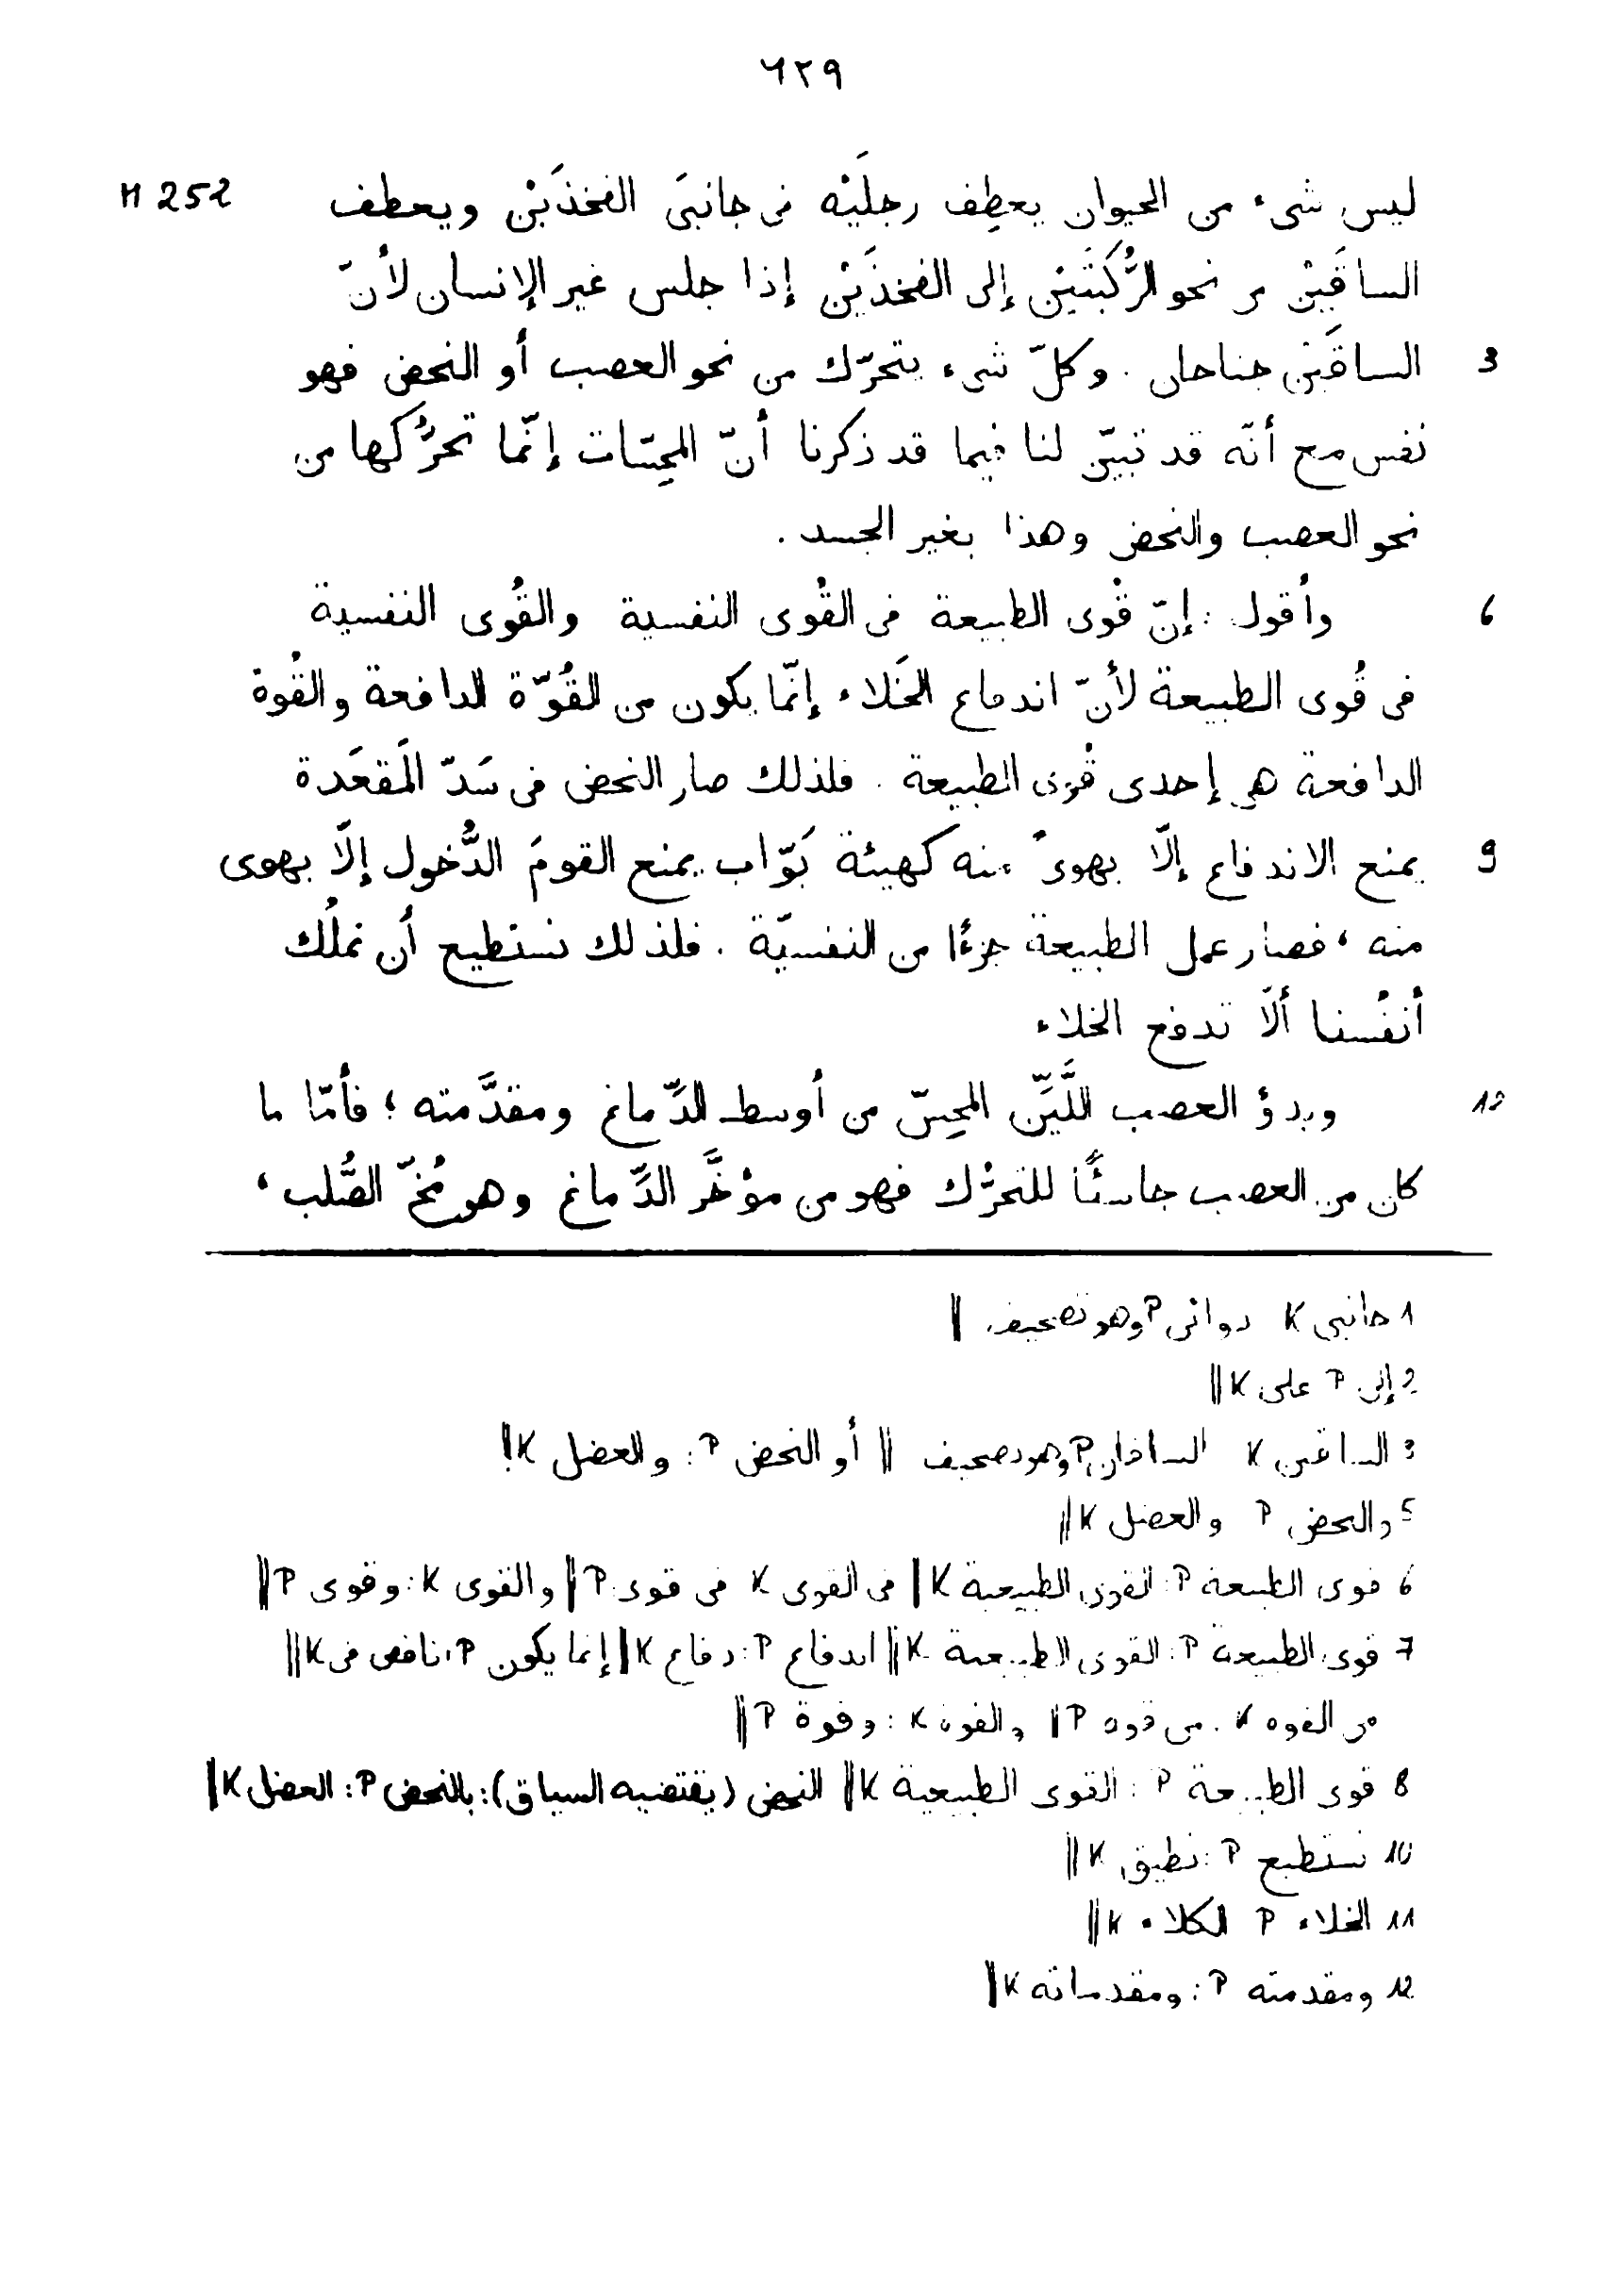 ٦٢٩
ليس شىء من الحيوان يعطِف رجلَيْه فى جانبَىَ الفخذَيْن ويعطف H 252
الساقَيْن من نحو الرُّكبتَيْن إلى الفخذَيْن إذا جلس غير الإنسان لأنّ
3 الساقَيْن جناحان . وكلّ شىء يتحرّك من نحو العصب أو النحض فهو
نفس مع أنّه قد تبيّن لنا فيما قد ذكرنا أنّ المحِسّات إنّما تحرُّكها من
نحو العصب والنحض وهذا بغير الجسد .
6 وأقول : إنّ قُوى الطبيعة فى القُوى النفسية والقُوى النفسية
فى قُوى الطبيعة لأنّ اندفاع الخَلاء إنّما يكون من القُوّة الدافعة والقُوة
الدافعة هى إحدى قُوى الطبيعة . فلذلك صار النحض فى سَدّ المَقعَدة
9 يمنع الاندفاع إلّا بهوىً منه كهيئة بَوّاب يمنع القومَ الدُّخول إلّا بهوى
منه ، فصار عمل الطبيعة جزءًا من النفسيّة . فلذلك نستطيع أن نملُك
أنفُسنا ألّا تدفع الخلاء
12 وبدؤ العصب اللَّيِّن المحِسّ من أوسط الدِّماغ ومقدَّمته ؛ فأمّا ما
كان من العصب جاسئًا للتحرُّك فهو من مؤخَّر الدِّماغ وهو مُخّ الصُّلب ،
1 جانبى K دوانى P وهو تصحيف ||
2 إلى P على K ||
3 الساقين K الساقان P وهو تصحيف || أو النحض P : والعضل K ||
5 والنحض P والعضل K ||
6 قوى الطبيعة P : القوى الطبيعية K || فى القوى K فى قوى P || والقوى K : وقوى P ||
7 قوى الطبيعة P : القوى الطبيعية K || اندفاع P : دفاع K || إنما يكون P : نافض فى K ||
من القوه K . من قوه P || والقوة K : وقوة P ||
8 قوى الطبيعة P : القوى الطبيعية K || النحض (يقتضيه السياق) : بالنحض P : العضل K ||
10 نستطيع P : نطيق K ||
11 الخلاء P الكلاء K ||
12 ومقدمته P : ومقدماته K ||